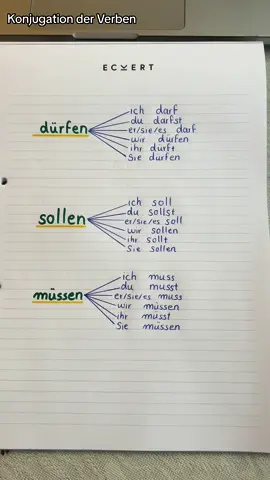 Konjugation der Verben
ECKERT
dürfen
ich darf
du darfst
er/sie/es darf
wir dürfen
ihr dürft
Sie dürfen
sollen
ich soll
du sollst
er/sie/es soll
wir sollen
ihr sollt
Sie sollen
müssen
ich muss
du musst
er/sie/es muss
wir müssen
ihr müsst
Sie müssen